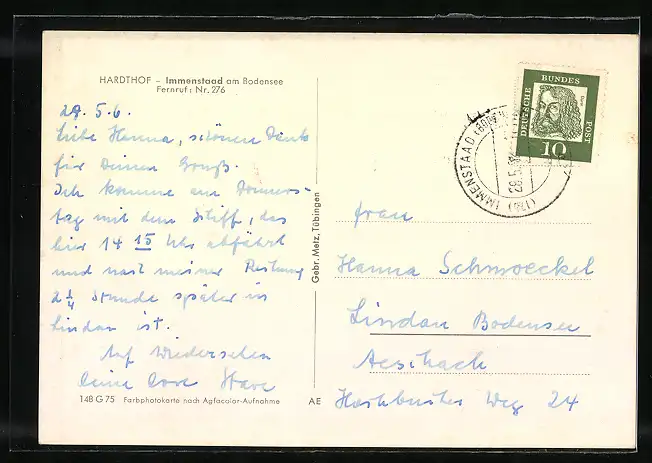 HARDTHOF – Immenstaad am Bodensee
Fernruf: Nr. 276
28.5.6.
Liebe Hanna, schönen Dank
für Deinen Gruß.
Ich komme am Donners-
tag mit dem Schiff, das
hier 14 15 Uhr abfährt
und nach meiner Rechnung
2 1/4 Stunde später in
Lindau ist.
Auf Wiedersehen
Deine
148 G 75 Farbphotokarte nach Agfacolor-Aufnahme
AE
Gebr. Metz, Tübingen
DEUTSCHE BUNDES POST
10
IMMENSTAAD
28.5.
Frau
Hanna Schmoeckel
Lindau Bodensee
Aeschach
Weg 24